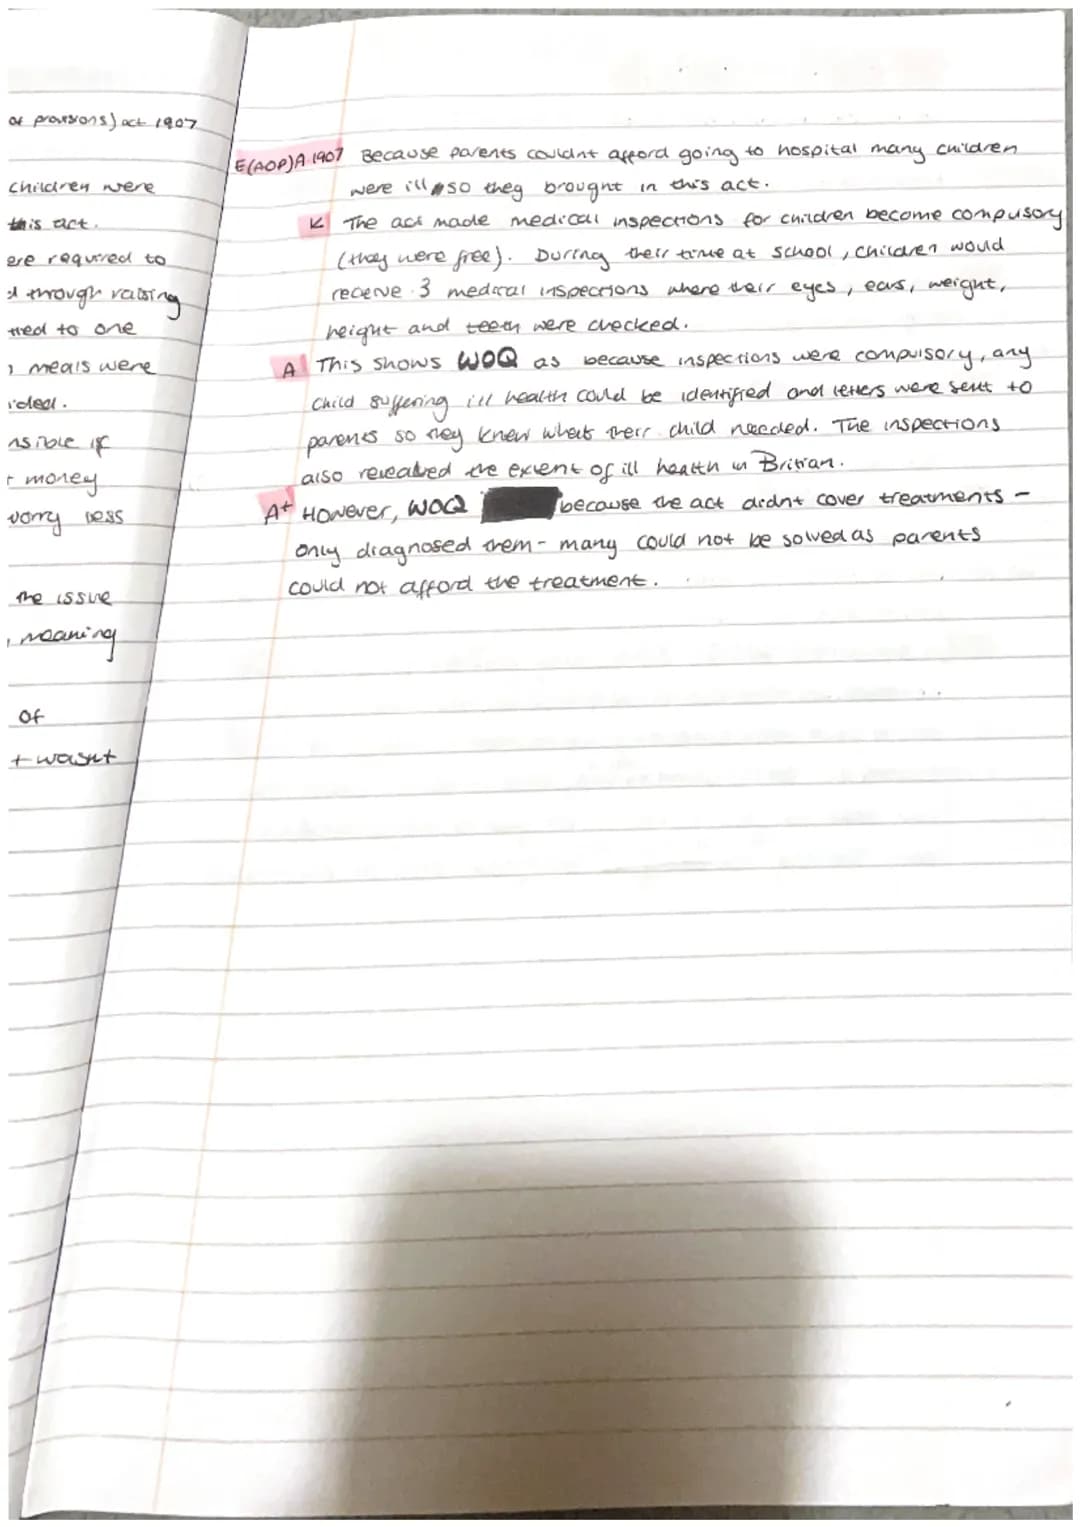 or provisions) act 1907
children were
this act.
ere required to
d through raising
tted to one
meals were
ided.
nsible if
t money
worry less
the issue
, meaning
of
t wasnt
E(AOP)A 1907 Because parents couldnt afford going to hospital many children
were ill so they brought in this act.
K The act made medical inspections for children become compusory
(they were free). During their time at school, children would
receive 3 medical inspections where their eyes, ears, weight,
height and teeth were checked.
A This shows WOQ as because inspections were compulsory, any
child suffering ill health could be identified and letters were sent to
parents so they knew what their child needed. The inspections
also revealed the extent of ill health in Britian.
A+ However, WOQ because the act didnt cover treatments -
only diagnosed them - many could not be solved as parents
could not afford the treatment.